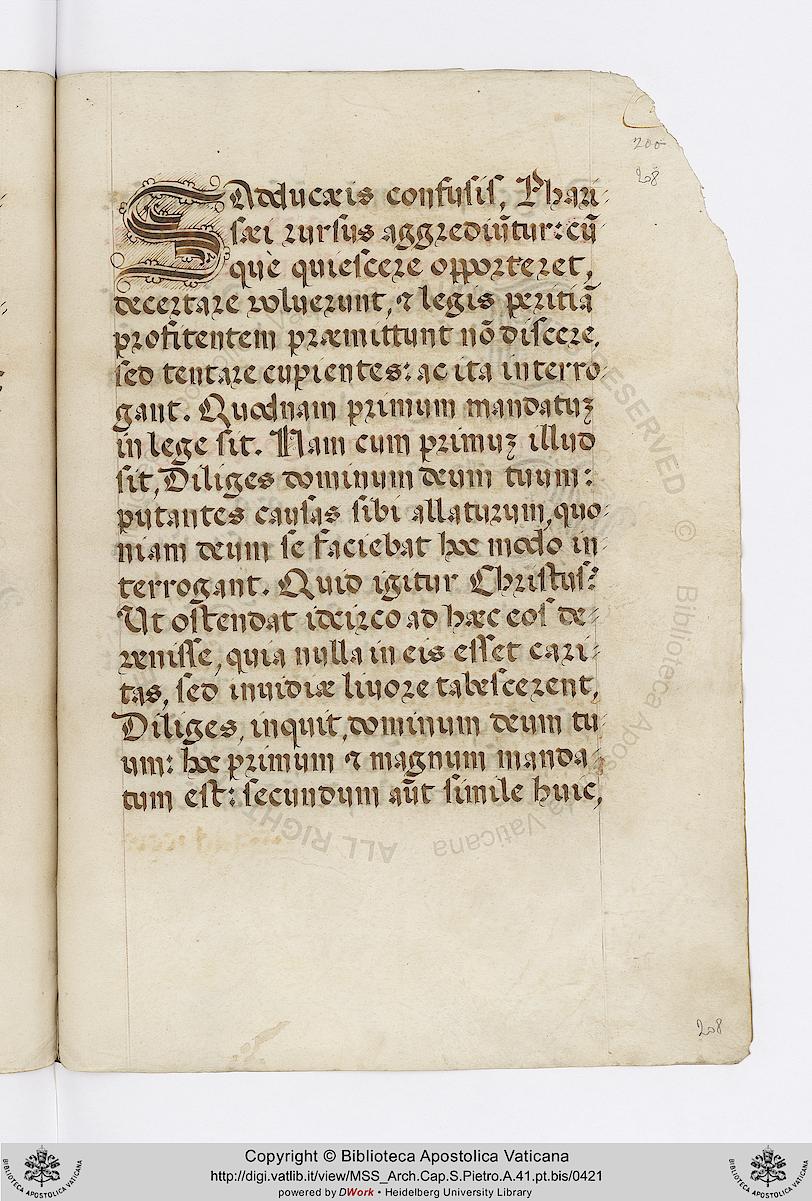 200
208
SAdducæis confusis, Phari-
sæi rursus aggrediũtur: cũ
què quiescere opporteret,
decertare voluerunt, & legis peritiã
profitentem præmittunt nõ discere,
sed tentare cupientes: ac ita interro-
gant. Quodnam primum mandatuʒ
in lege sit. Nam cum primuʒ illud
sit, Diliges dominum deum tuum:
putantes causas sibi allaturum, quo-
niam deum se faciebat hoc modo in-
terrogant. Quid igitur Christus?
Ut ostendat idcirco ad hæc eos de-
venisse, quia nulla in eis esset cari-
tas, sed invidiæ livore tabescerent,
Diliges, inquit, dominum deum tu-
um: hoc primum & magnum manda-
tum est: secundum aũt simile huic,
208
ALL RIGHTS RESERVED © Biblioteca Apostolica Vaticana
BIBLIOTECA APOSTOLICA VATICANA
Copyright © Biblioteca Apostolica Vaticana
http://digi.vatlib.it/view/MSS_Arch.Cap.S.Pietro.A.41.pt.bis/0421
powered by DWork • Heidelberg University Library
BIBLIOTECA APOSTOLICA VATICANA